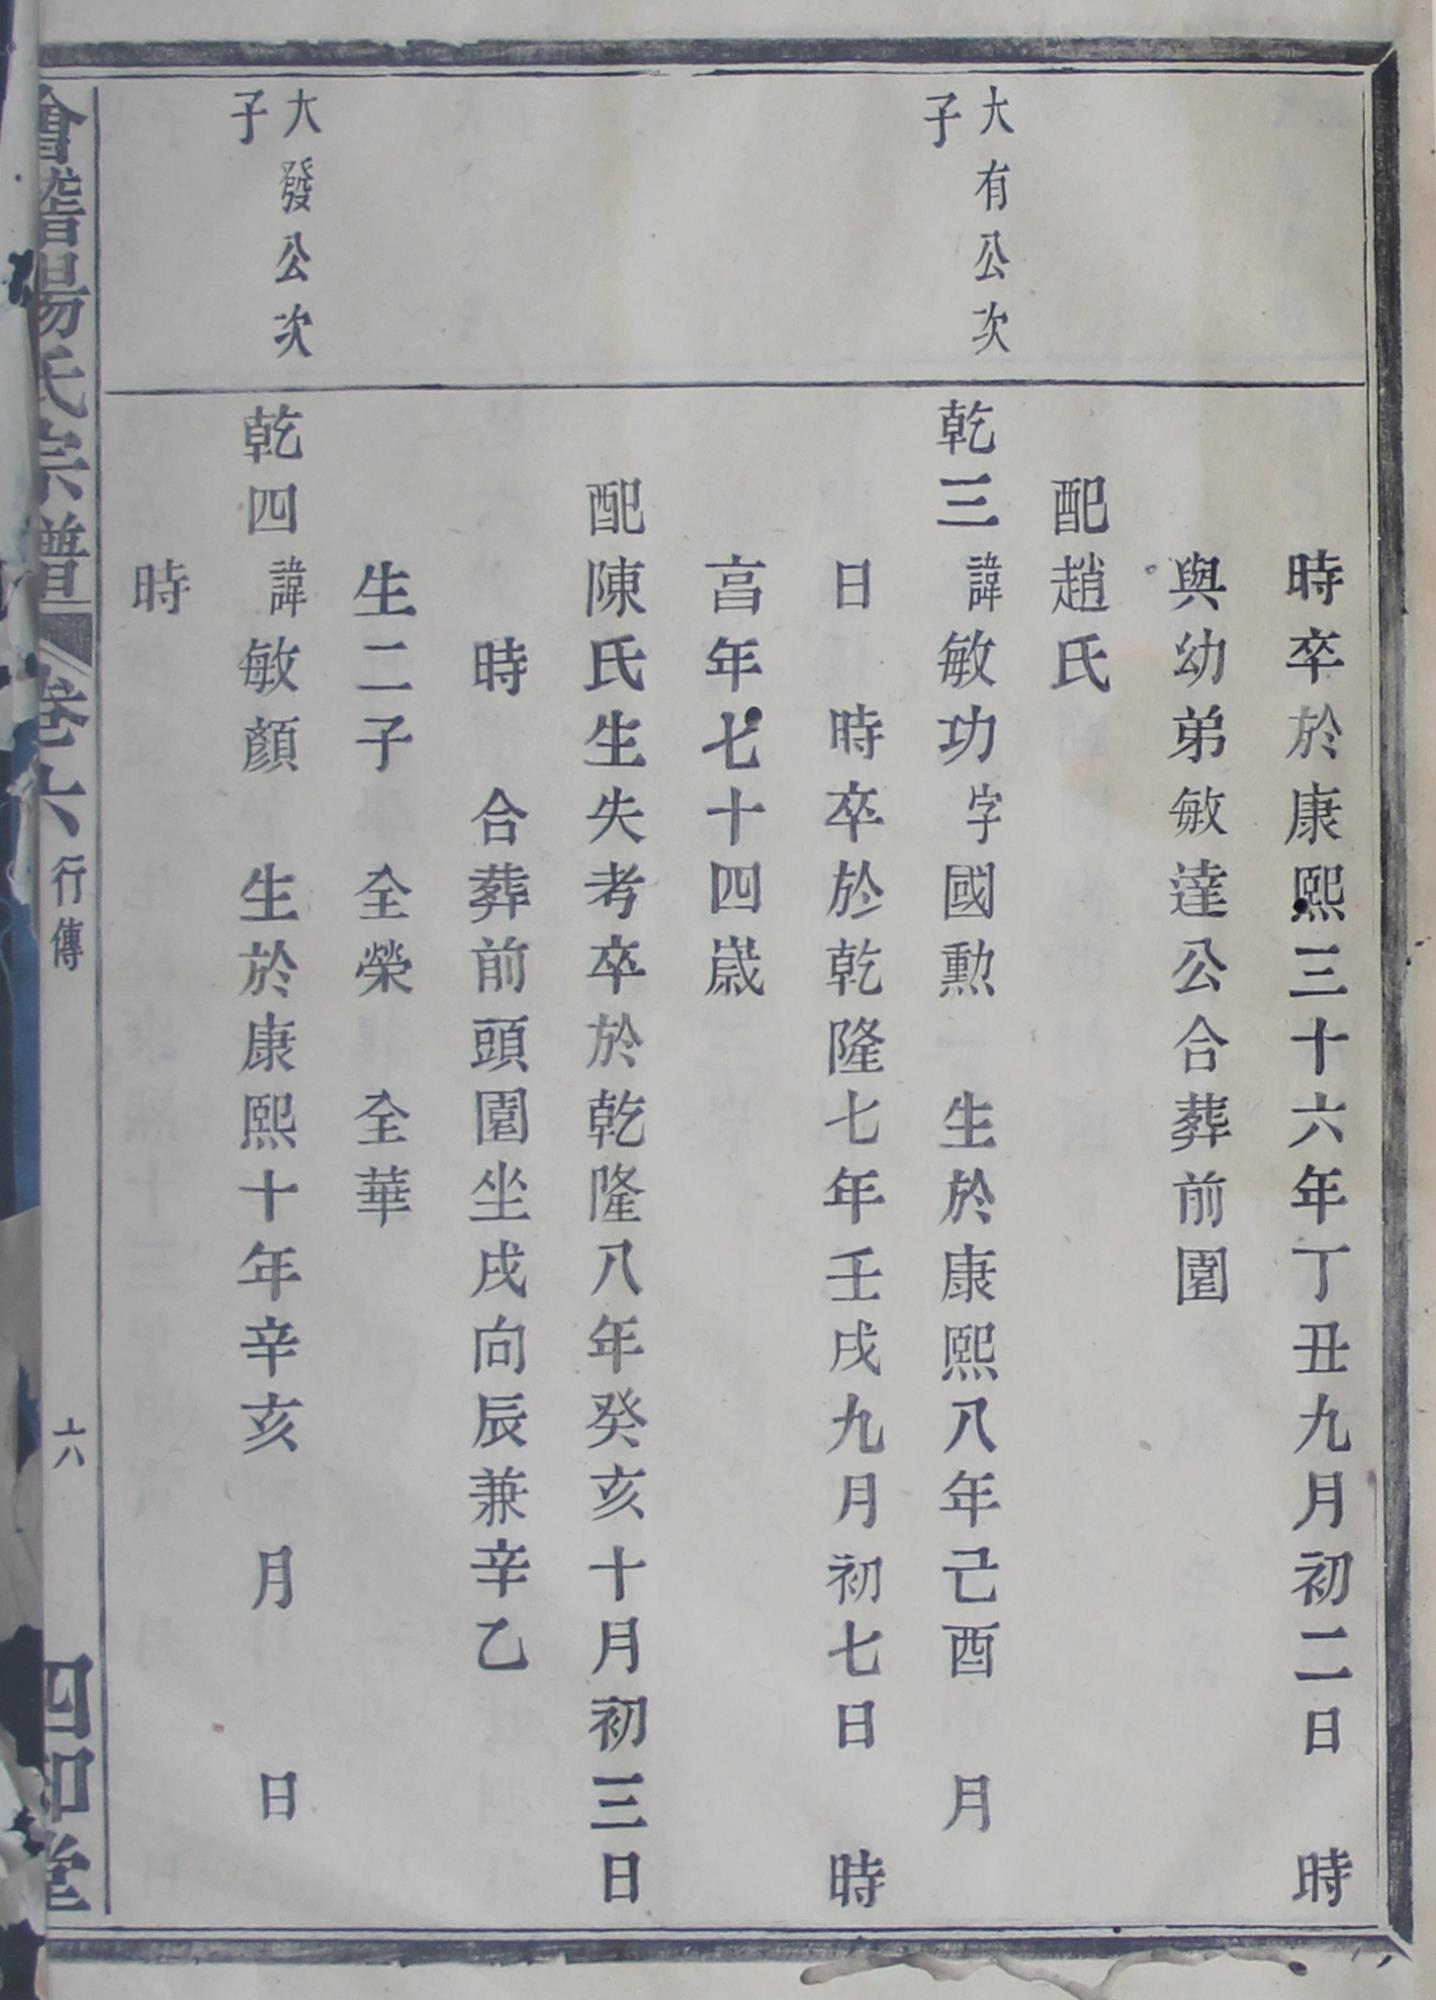 時卒於康熙三十六年丁丑九月初二日　時
與幼弟敏達公合葬前園
配趙氏
大有公次
子
乾三諱敏功字國勲　生於康熙八年己酉　月
日　時卒於乾隆七年壬戌九月初七日　時
亯年七十四歲
配陳氏生失考卒於乾隆八年癸亥十月初三日
時　合葬前頭園坐戌向辰兼辛乙
生二子　全榮　全華
大發公次
子
乾四諱敏顏　生於康熙十年辛亥　月　日
時
會稽楊氏宗譜　卷六　行傳　六　四知堂